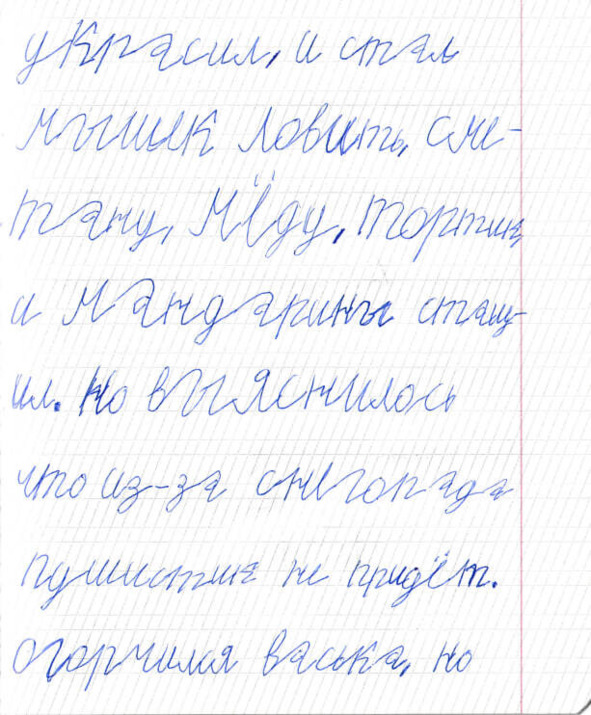 украсил, и стал
мышек ловить, сме-
тану, мёду, тортик,
и мандарины стащ-
ил. Но выяснилось
что из-за снегопада
пушистик не придёт.
огорчился васька, но